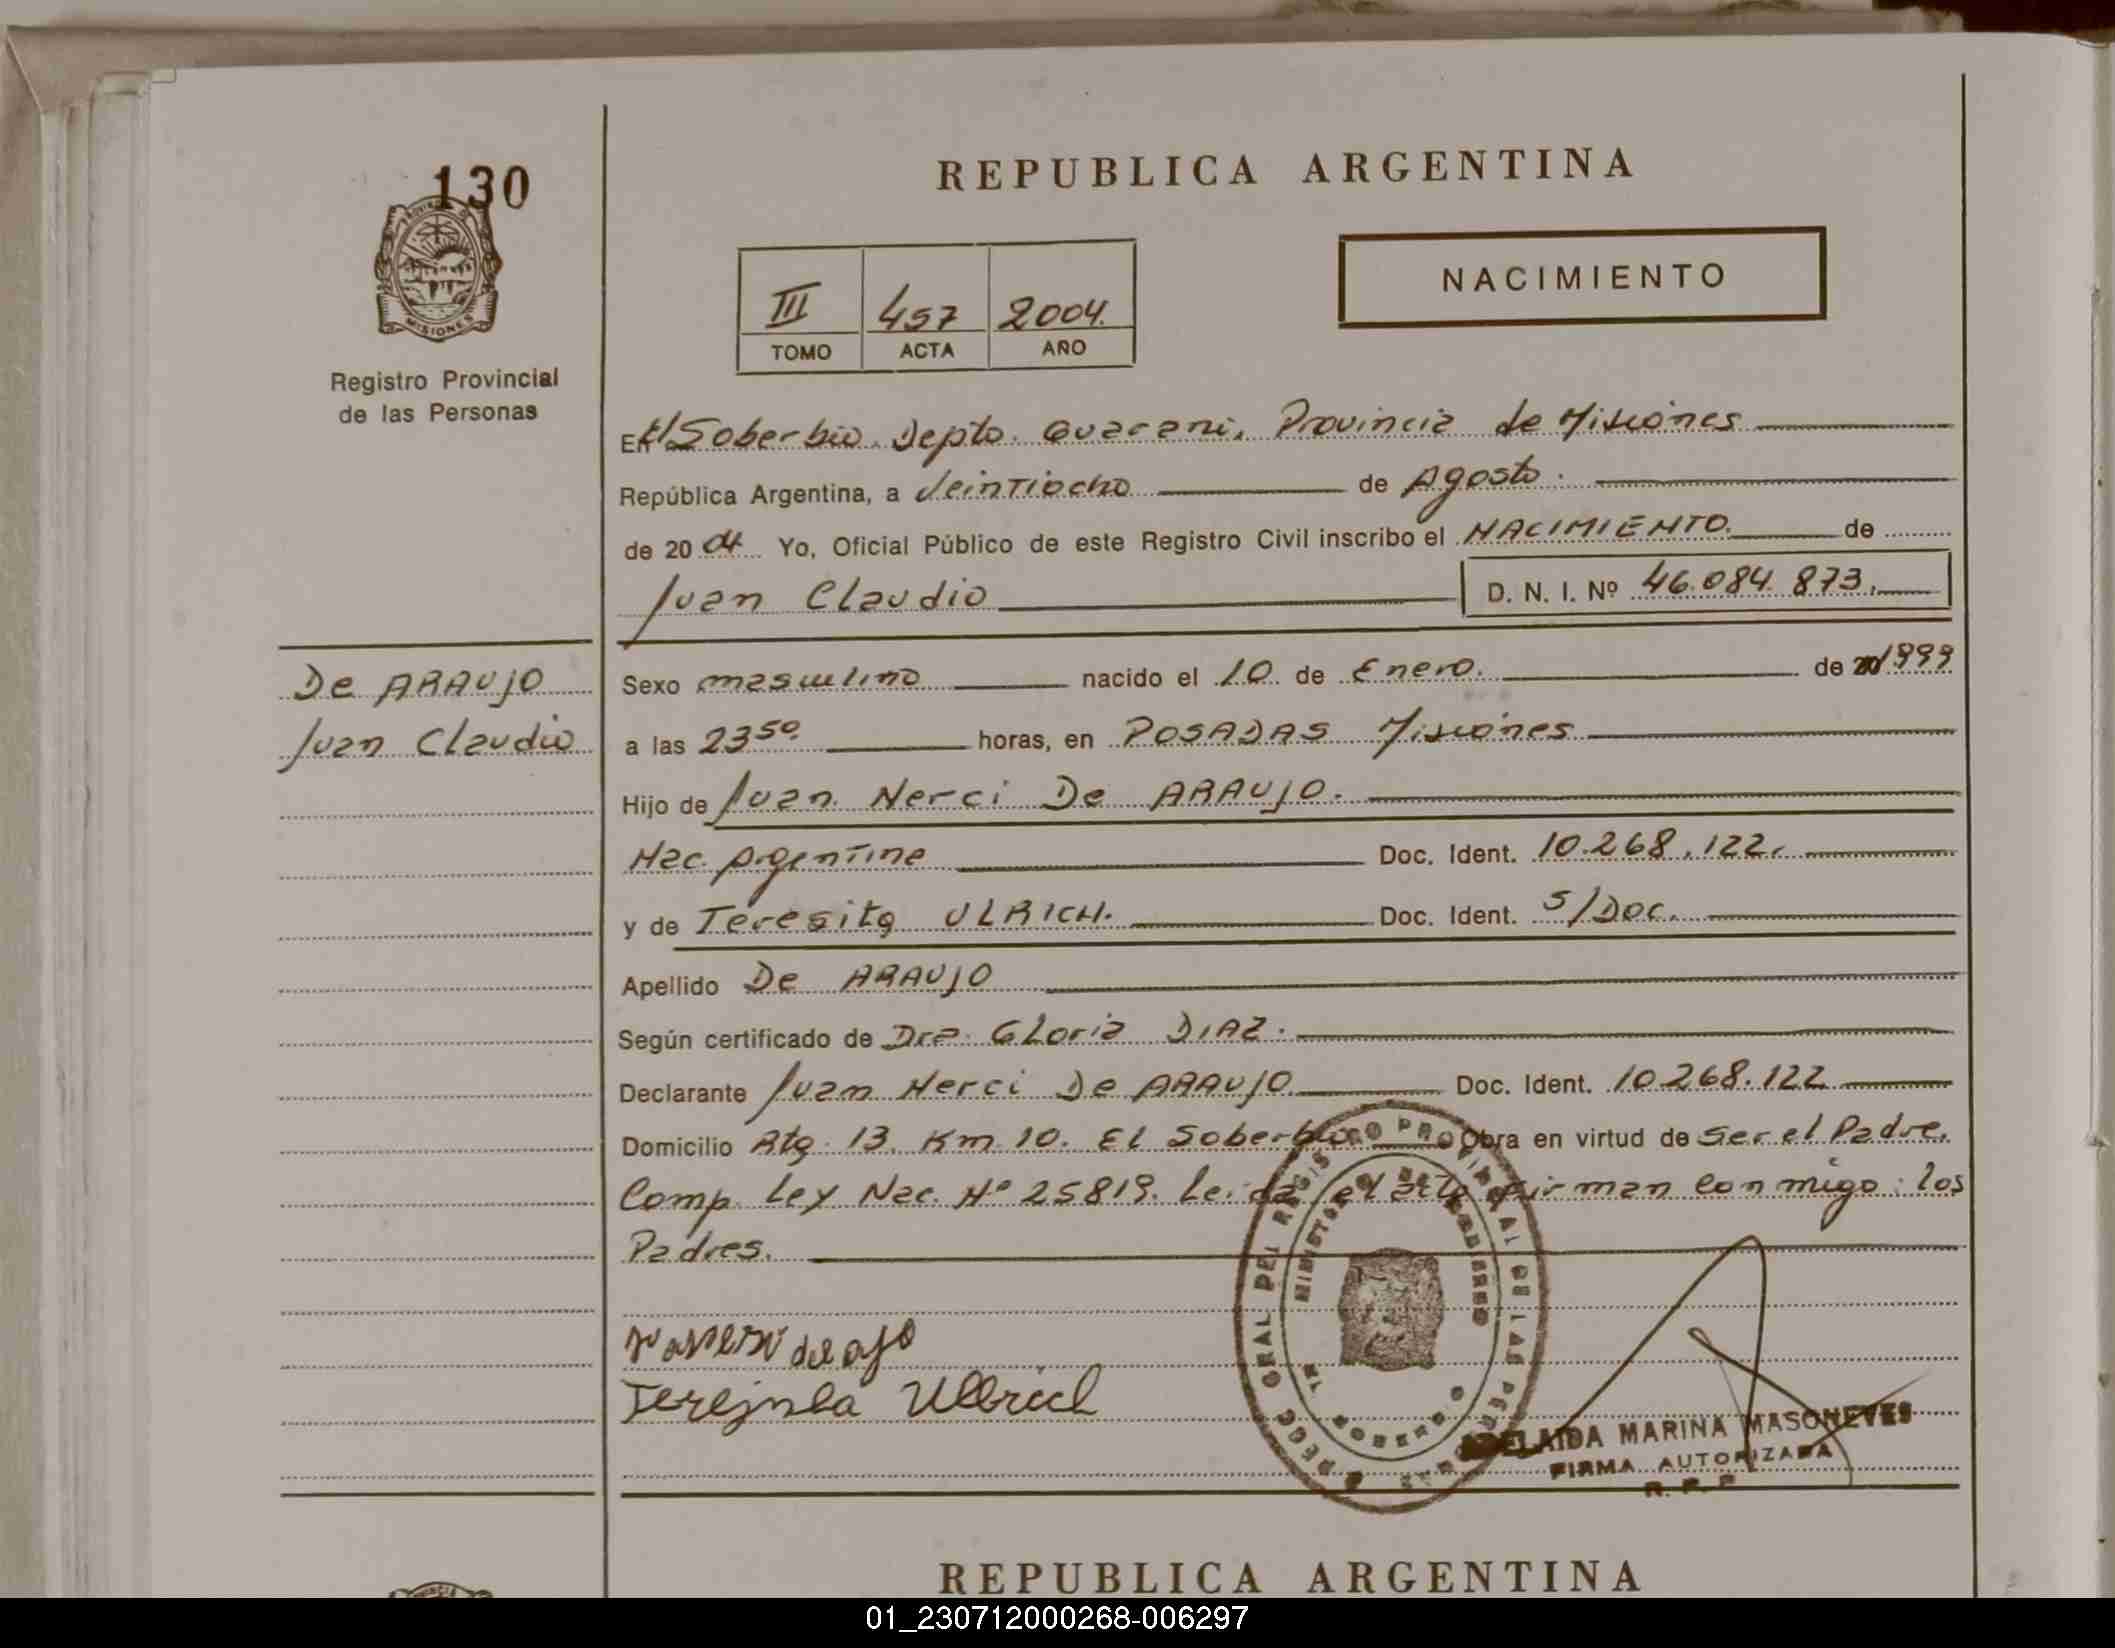 130
PROVINCIA DE
MISIONES
Registro Provincial
de las Personas
De ARAUJO
Juan Claudio
REPUBLICA ARGENTINA
NACIMIENTO
III 457 2004.
TOMO ACTA AÑO
En El Soberbio. Depto. Guarani. Provincia de Misiones
República Argentina, a Veintiocho de Agosto.
de 2004 Yo, Oficial Público de este Registro Civil inscribo el NACIMIENTO. de
Juan Claudio D. N. I. Nº 46.084.873.
Sexo masculino nacido el 10 de Enero. de 1999
a las 23⁵⁰ horas, en POSADAS Misiones
Hijo de Juan Nerci De ARAUJO.
Nac. Argentina Doc. Ident. 10.268.122.
y de Teresita ULRICH. Doc. Ident. S/Doc.
Apellido De ARAUJO
Según certificado de Dra. Gloria DIAZ.
Declarante Juan Nerci De ARAUJO Doc. Ident. 10.268.122
Domicilio Rta. 13. Km. 10. El Soberbio Obra en virtud de ser el Padre.
Comp. Ley Nac. Nº 25819. Leida el acta firman conmigo: los
Padres.
Teresita Ullrich
ADELAIDA MARINA MASONEVES
FIRMA AUTORIZADA
R. P. P.
REPUBLICA ARGENTINA
01_230712000268-006297